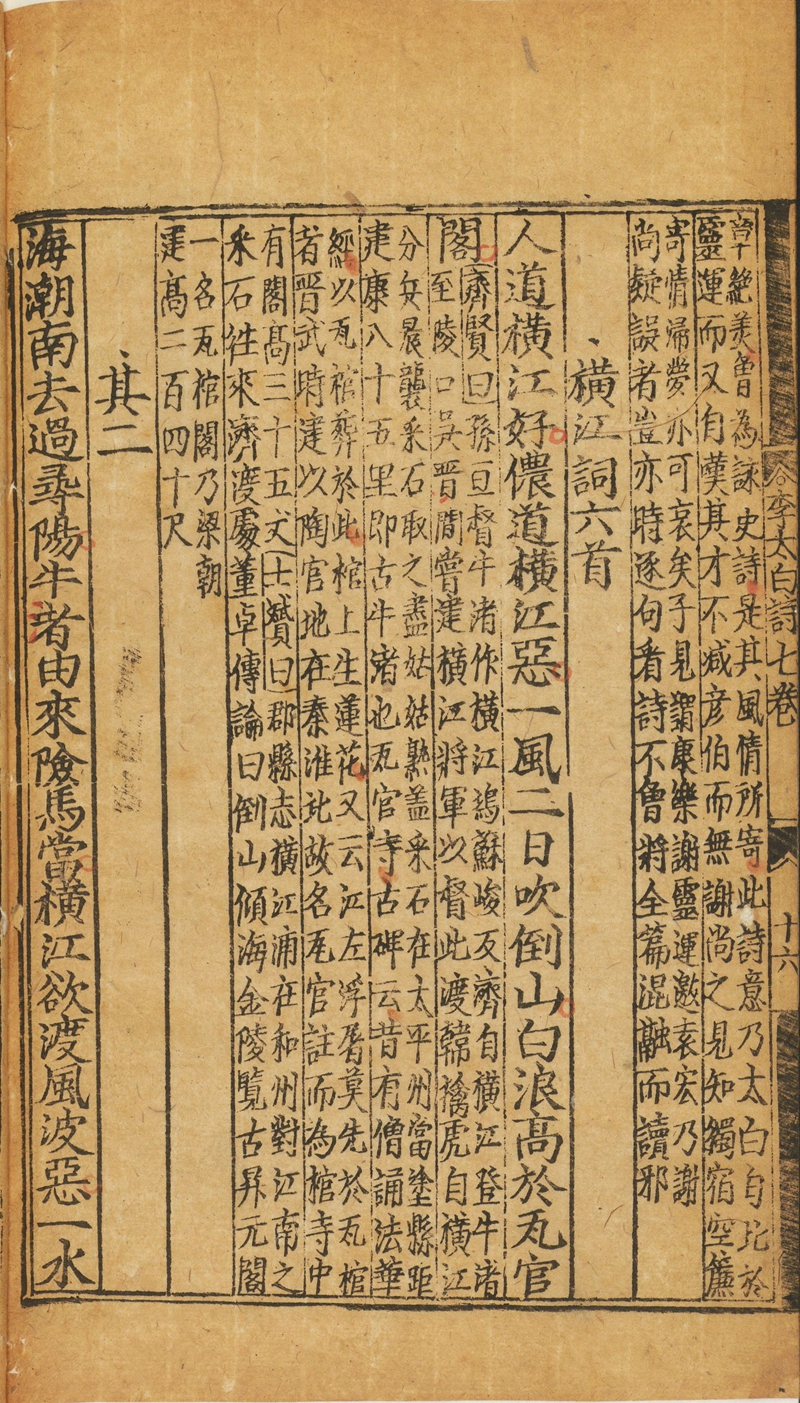 李太白詩七卷
十六
章絶羙魯為詠史詩是其風情所寄此詩意乃太白自比於
靈運而又自嘆其才不减彦伯而無謝尚之見知獨宿空簾
寄情㷌夢亦可哀矣子見猶康樂謝靈運邀袁宏乃謝
尚疑誤者豈亦時逐句看詩不魯將全篇混融而讀邪
橫江詞六首
人道橫江好儂道橫江惡一風二日吹倒山白浪高於瓦官
閣
齊賢曰孫亘督牛渚作橫江塢蘇峻反濟自橫江登牛渚
至陵口吳晋間嘗建橫江將軍以督此渡韓擒虎自橫江
分兵晨襲采石取之盡姑姑熟盖采石在太平州當塗縣距
建康八十五里即古牛渚也瓦官寺古碑云昔有僧誦法華
經以瓦棺葬於此棺上生蓮花又云江左浮屠莫先於瓦棺
者晋武時建以陶官地在秦淮北故名瓦官註而為棺寺中
有閣高三十五丈士贇曰郡縣志橫江浦在和州對江南之
采石往來濟渡處董卓傳論曰倒山傾海金陵覽古昇元閣
一名瓦棺閣乃梁朝
建高二百四十尺
其二
海潮南去過尋陽牛者由來險馬當橫江欲渡風波惡一水